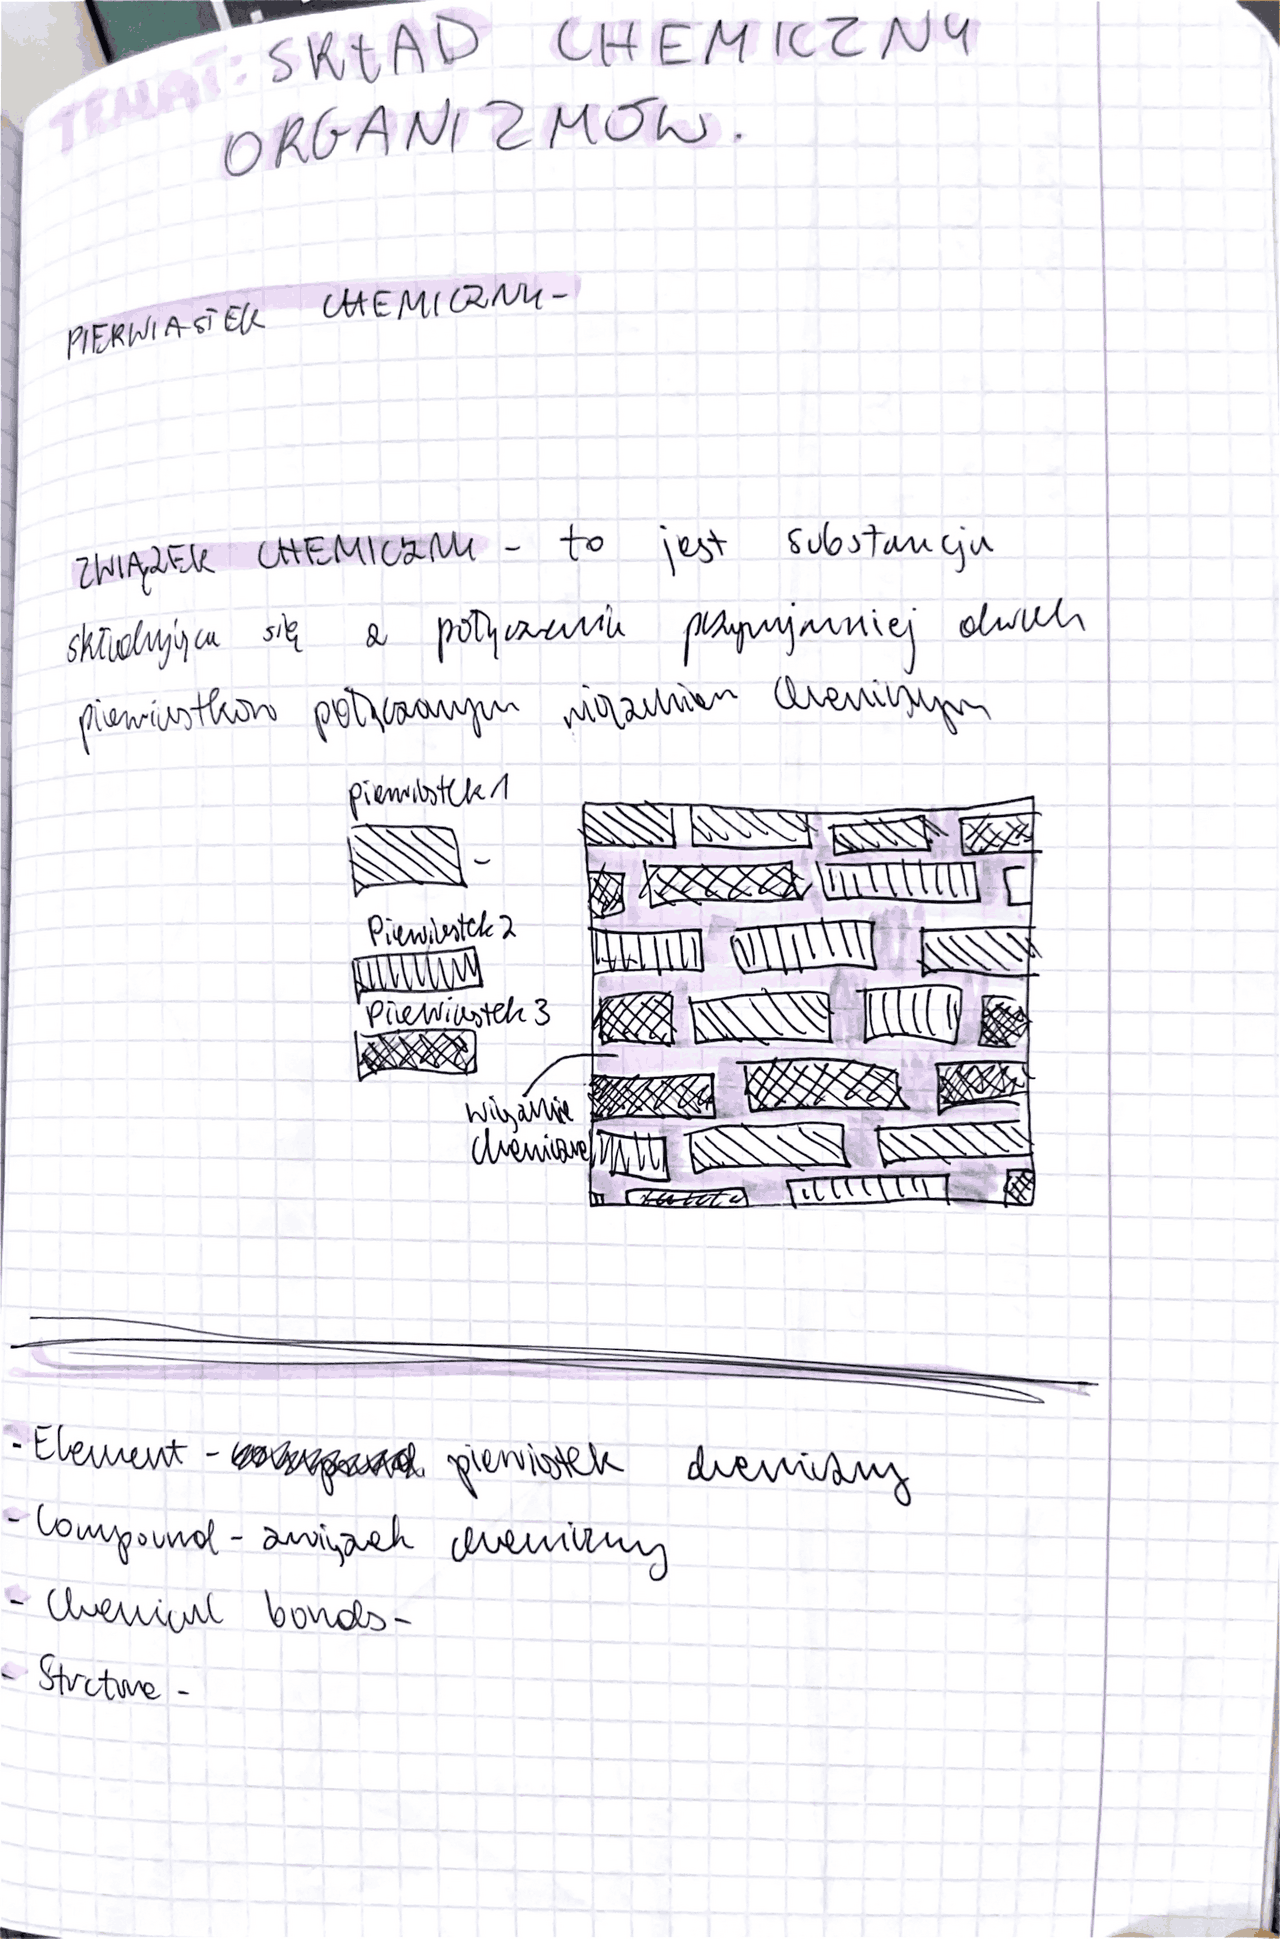 TEMAT: SKŁAD CHEMICZNY
ORGANIZMÓW.
PIERWIASTEK CHEMICZNY -
ZWIĄZEK CHEMICZNY - to jest substancja
składająca się z połączenia przynajmniej dwóch
pierwiastków połączonym wiązaniem chemicznym
pierwiastek 1
Pierwiastek 2
Pierwiastek 3
wiązanie
chemiczne
- Element - pierwiastek chemiczny
- Compound - związek chemiczny
- Chemical bonds -
- Strcture -